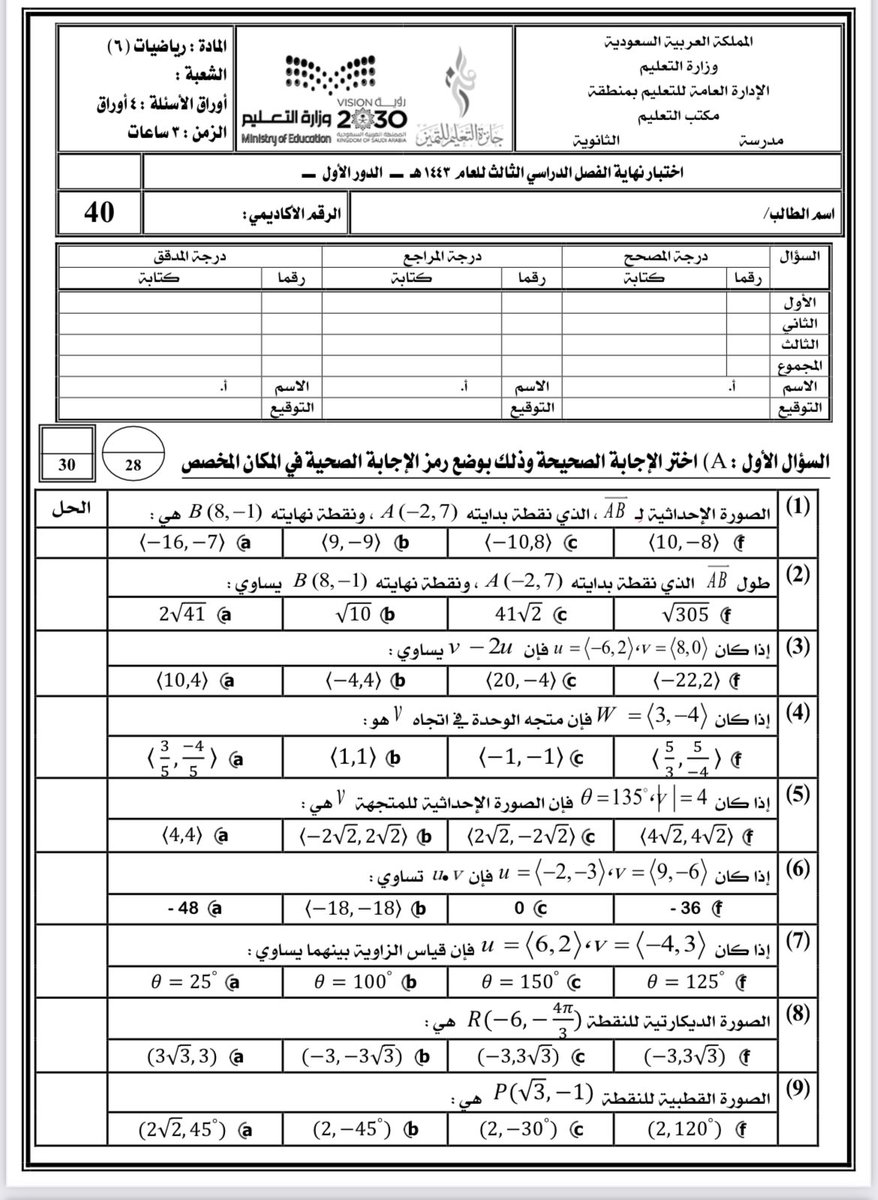 المملكة العربية السعودية
وزارة التعليم
الإدارة العامة للتعليم بمنطقة
مكتب التعليم
مدرسة الثانوية
جائزة التعليم للتميز
رؤيـــة VISION
2030
المملكة العربية السعودية
KINGDOM OF SAUDI ARABIA
وزارة التعـليم
Ministry of Education
المادة : رياضيات (٦)
الشعبة :
أوراق الأسئلة : ٤ أوراق
الزمن : ٣ ساعات
اختبار نهاية الفصل الدراسي الثالث للعام ١٤٤٣ هـ ــ الدور الأول ــ
اسم الطالب/ الرقم الأكاديمي: 40
السؤال درجة المصحح درجة المراجع درجة المدقق
رقما كتابة رقما كتابة رقما كتابة
الأول
الثاني
الثالث
المجموع
الاسم أ. الاسم أ. الاسم أ.
التوقيع التوقيع التوقيع
السؤال الأول : A) اختر الإجابة الصحيحة وذلك بوضع رمز الإجابة الصحية في المكان المخصص 28 30
(1) الصورة الإحداثية لـ AB ، الذي نقطة بدايته A(−2,7) ، ونقطة نهايته B(8,−1) هي : الحل
f ⟨10,−8⟩ c ⟨−10,8⟩ b ⟨9,−9⟩ a ⟨−16,−7⟩
(2) طول AB الذي نقطة بدايته A(−2,7) ، ونقطة نهايته B(8,−1) يساوي :
f √305 c 41√2 b √10 a 2√41
(3) إذا كان u = ⟨−6,2⟩، v = ⟨8,0⟩ فإن v − 2u يساوي :
f ⟨−22,2⟩ c ⟨20,−4⟩ b ⟨−4,4⟩ a ⟨10,4⟩
(4) إذا كان W = ⟨3,−4⟩ فإن متجه الوحدة في اتجاه V هو :
f ⟨5/3, 5/−4⟩ c ⟨−1,−1⟩ b ⟨1,1⟩ a ⟨3/5, −4/5⟩
(5) إذا كان θ = 135°، |v| = 4 فإن الصورة الإحداثية للمتجهة V هي :
f ⟨4√2, 4√2⟩ c ⟨2√2,−2√2⟩ b ⟨−2√2, 2√2⟩ a ⟨4,4⟩
(6) إذا كان u = ⟨−2,−3⟩، v = ⟨9,−6⟩ فإن u•v تساوي :
f - 36 c 0 b ⟨−18,−18⟩ a - 48
(7) إذا كان u = ⟨6,2⟩، v = ⟨−4,3⟩ فإن قياس الزاوية بينهما يساوي :
f θ = 125° c θ = 150° b θ = 100° a θ = 25°
(8) الصورة الديكارتية للنقطة R(−6,−4π/3) هي :
f (−3,3√3) c (−3,3√3) b (−3,−3√3) a (3√3,3)
(9) الصورة القطبية للنقطة P(√3,−1) هي :
f (2,120°) c (2,−30°) b (2,−45°) a (2√2,45°)